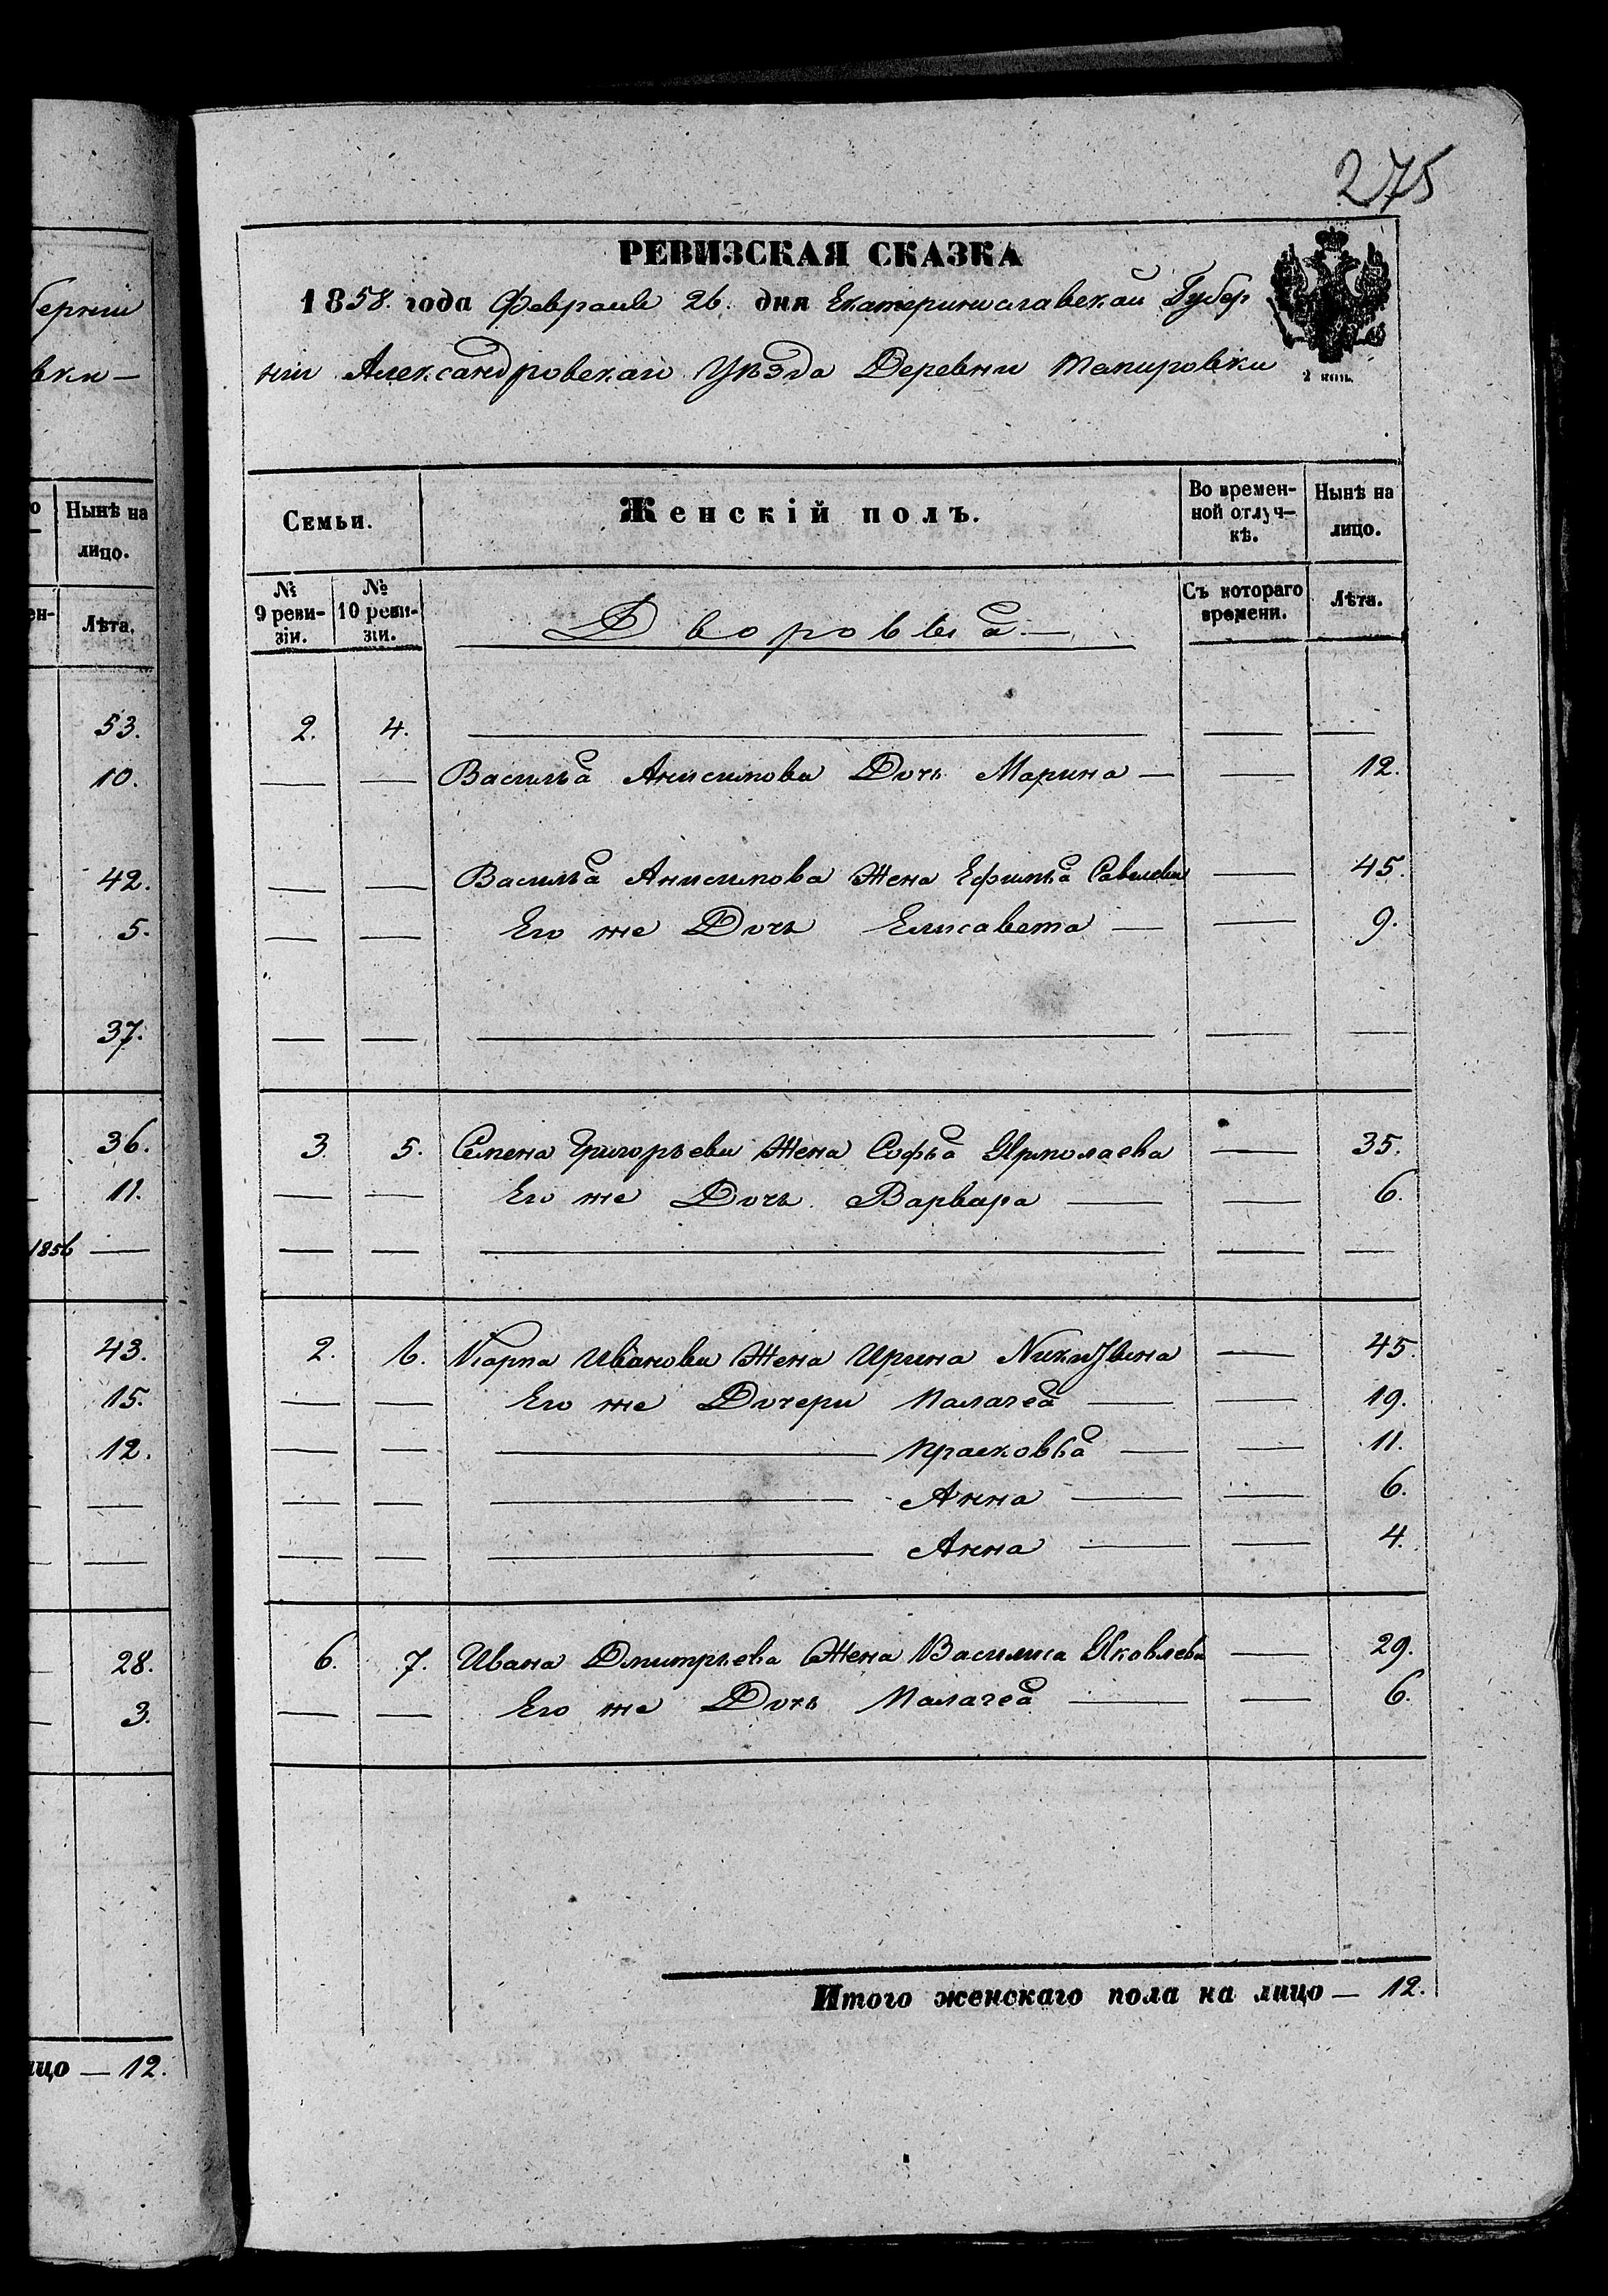 275
РЕВИЗСКАЯ СКАЗКА
1858. года Февраля 26. дня Екатеринославской Губер
ніи Александровскаго Уѣзда Деревни
2 коп.
Семьи. Женскій полъ. Во времен- Нынѣ на
ной отлуч- лицо.
кѣ.
№ № Съ котораго Лѣта.
9 реви- 10 реви- времени.
зіи. зіи.
Дворовыя —
2. 4. — — —
— — Василья Анисимова Дочь Марина — — 12.
— — Василья Анисимова Жена Ефимья Савельева — 45.
— — Его же Дочь Елисавета — — 9.
— — — — —
3. 5. Семена Григорьева Жена Софья Ярмолаева — 35.
— — Его же Дочь Варвара — — 6.
— — — — —
2. 6. Карпа Иванова Жена Ирина — 45.
— — Его же Дочери Палагея — — 19.
— — — Прасковья — — 11.
— — — Анна — — 6.
— — — Анна — — 4.
6. 7. Ивана Дмитрьева Жена Василиса Яковлева — 29.
— — Его же Дочь Палагея — — 6.
Итого женскаго пола на лицо — 12.
берніи
вки —
Нынѣ на
лицо.
ен- Лѣта.
53.
10.
42.
5.
37.
36.
11.
1856 —
43.
15.
12.
—
—
28.
3.
ицо — 12.